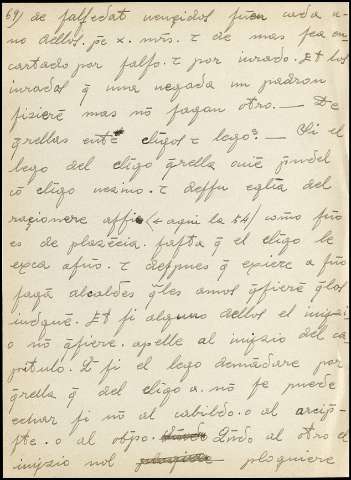 69) de falsedat vençidos sean cada u-
no dellos. pc x. mrs. τ de mas sea en
cartado por falso. τ por iurado. Et los
iurados q̄ una vegada un padron
fizierē mas nō fagan otro. — De
q̄rellas entē cligos τ legos — Si el
lego del cligo q̄rella ouiē
cō cligo uezino. τ dessu eglia del
racionero assi (+ aqui la 54) como fuō
es de plazēcia. fasta q̄ el cligo le
exca a fuo. τ despues q̄ exiere a fuo
fagā alcaldes q̄les amos q̄sierē q̄los
iudguē. Et si alguno dellos el iuyzi
o nō q̄siere. apelle al iuyzio del ca
pitulo. Τ si el lego demādare por
q̄rella q̄ del cligo a. nō se puede
echar si nō al cabildo. o al arcip̄-
ste. o al obpo. Qndo al otro el
iuyzio nol ploguiere